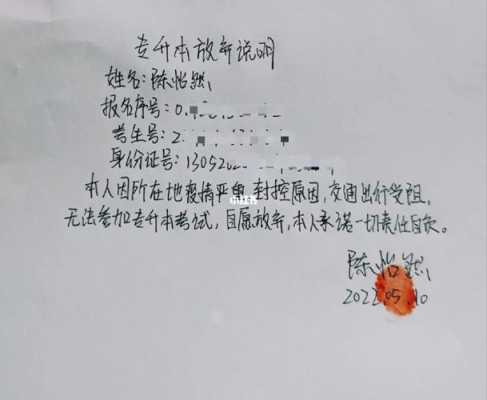 专升本放弃说明
姓名:陈怡然
报名序号:0.
考生号:2
身份证号:13092
本人因所在地疫情严重,封控原因,交通出行受阻,
无法参加专升本考试,自愿放弃,本人承诺一切责任自负。
小红书
陈怡然
2022.05.10